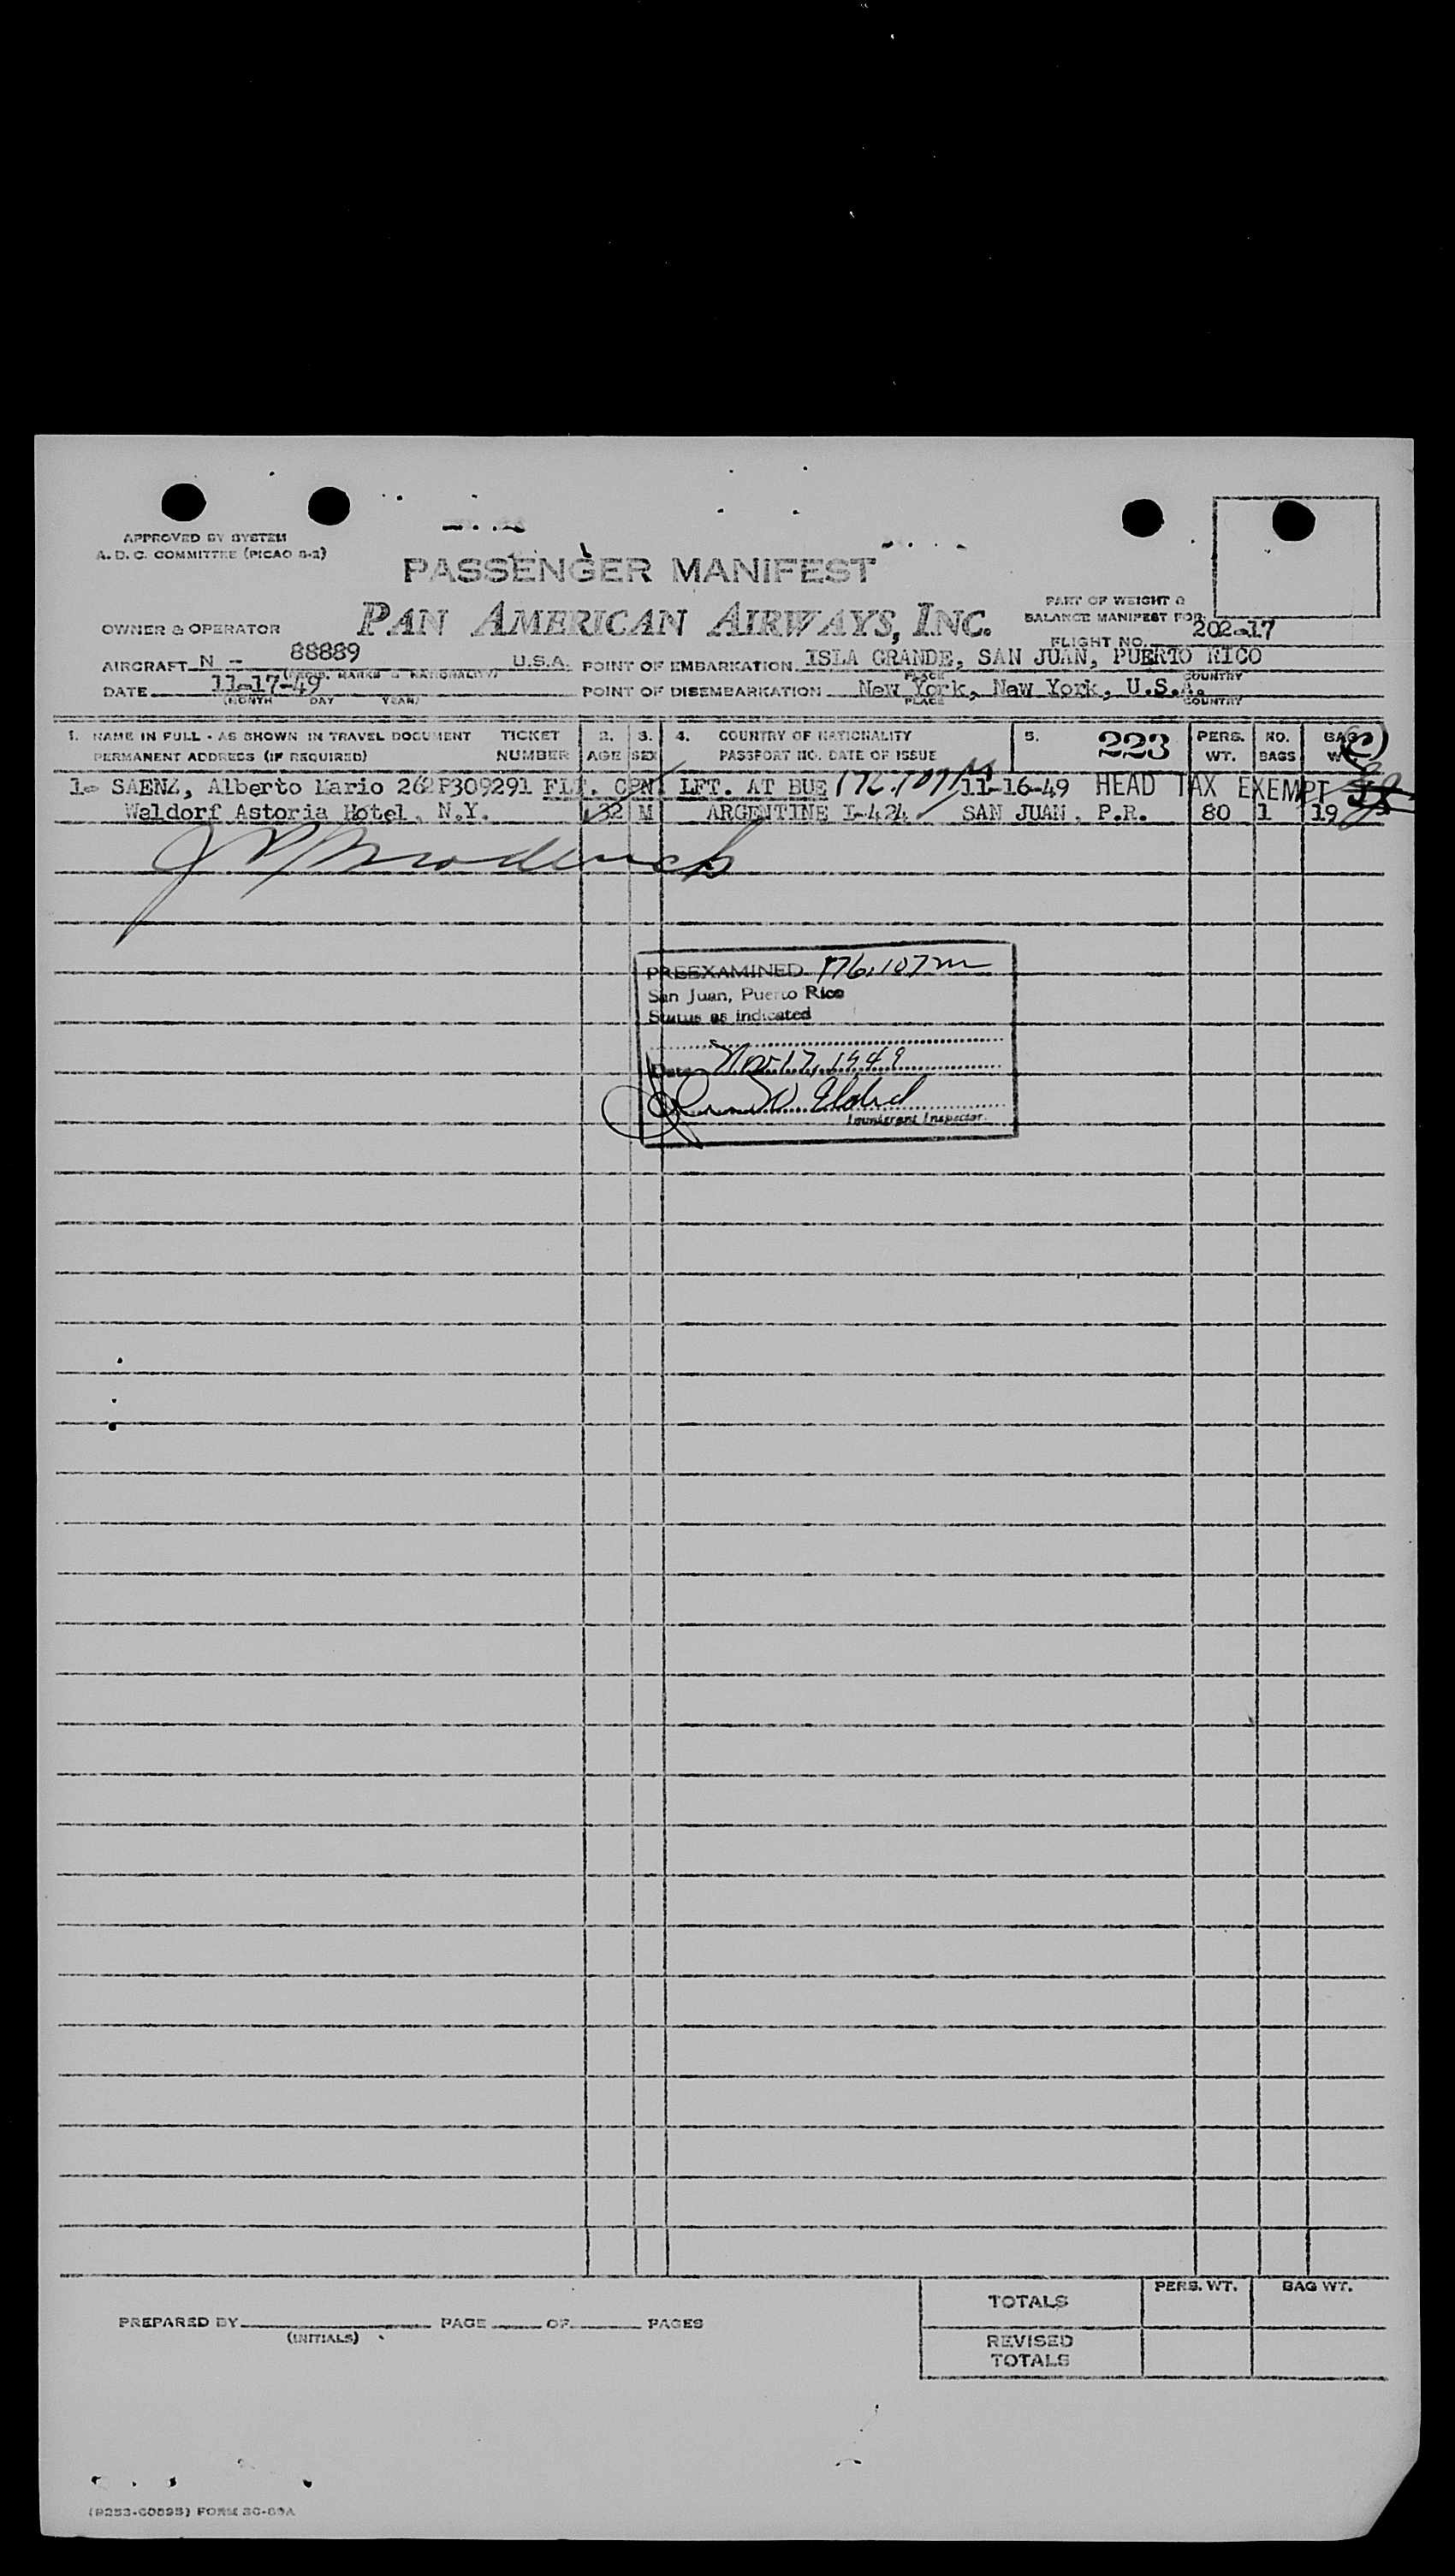 APPROVED BY SYSTEM
A. D. C. COMMITTEE (PICAO S-2)
PASSENGER MANIFEST
PAN AMERICAN AIRWAYS, INC.
PART OF WEIGHT &
BALANCE MANIFEST FOR
OWNER & OPERATOR
FLIGHT NO. 202-17
AIRCRAFT N - 88889 U.S.A. POINT OF EMBARKATION ISLA GRANDE, SAN JUAN, PUERTO RICO
MARKS & NATIONALITY) PLACE COUNTRY
DATE 11-17-49 POINT OF DISEMBARKATION New York, New York, U.S.A.
(MONTH DAY YEAR) PLACE COUNTRY
1. NAME IN FULL - AS SHOWN IN TRAVEL DOCUMENT TICKET 2. 3. 4. COUNTRY OF NATIONALITY 5. 223 PERS. NO. BAG
PERMANENT ADDRESS (IF REQUIRED) NUMBER AGE SEX PASSPORT NO. DATE OF ISSUE WT. BAGS
1- SAENZ, Alberto Mario 262P309291 FLT. CPN LFT. AT BUE 176.107M 11-16-49 HEAD TAX EXEMPT
Waldorf Astoria Hotel, N.Y. 32 M ARGENTINE I-424 SAN JUAN, P.R. 80 1 19
PREEXAMINED 176.107M
San Juan, Puerto Rico
Status as indicated
Date Nov 17, 1949
Immigrant Inspector
TOTALS PERS. WT. BAG WT.
PREPARED BY PAGE OF PAGES
(INITIALS)
REVISED
TOTALS